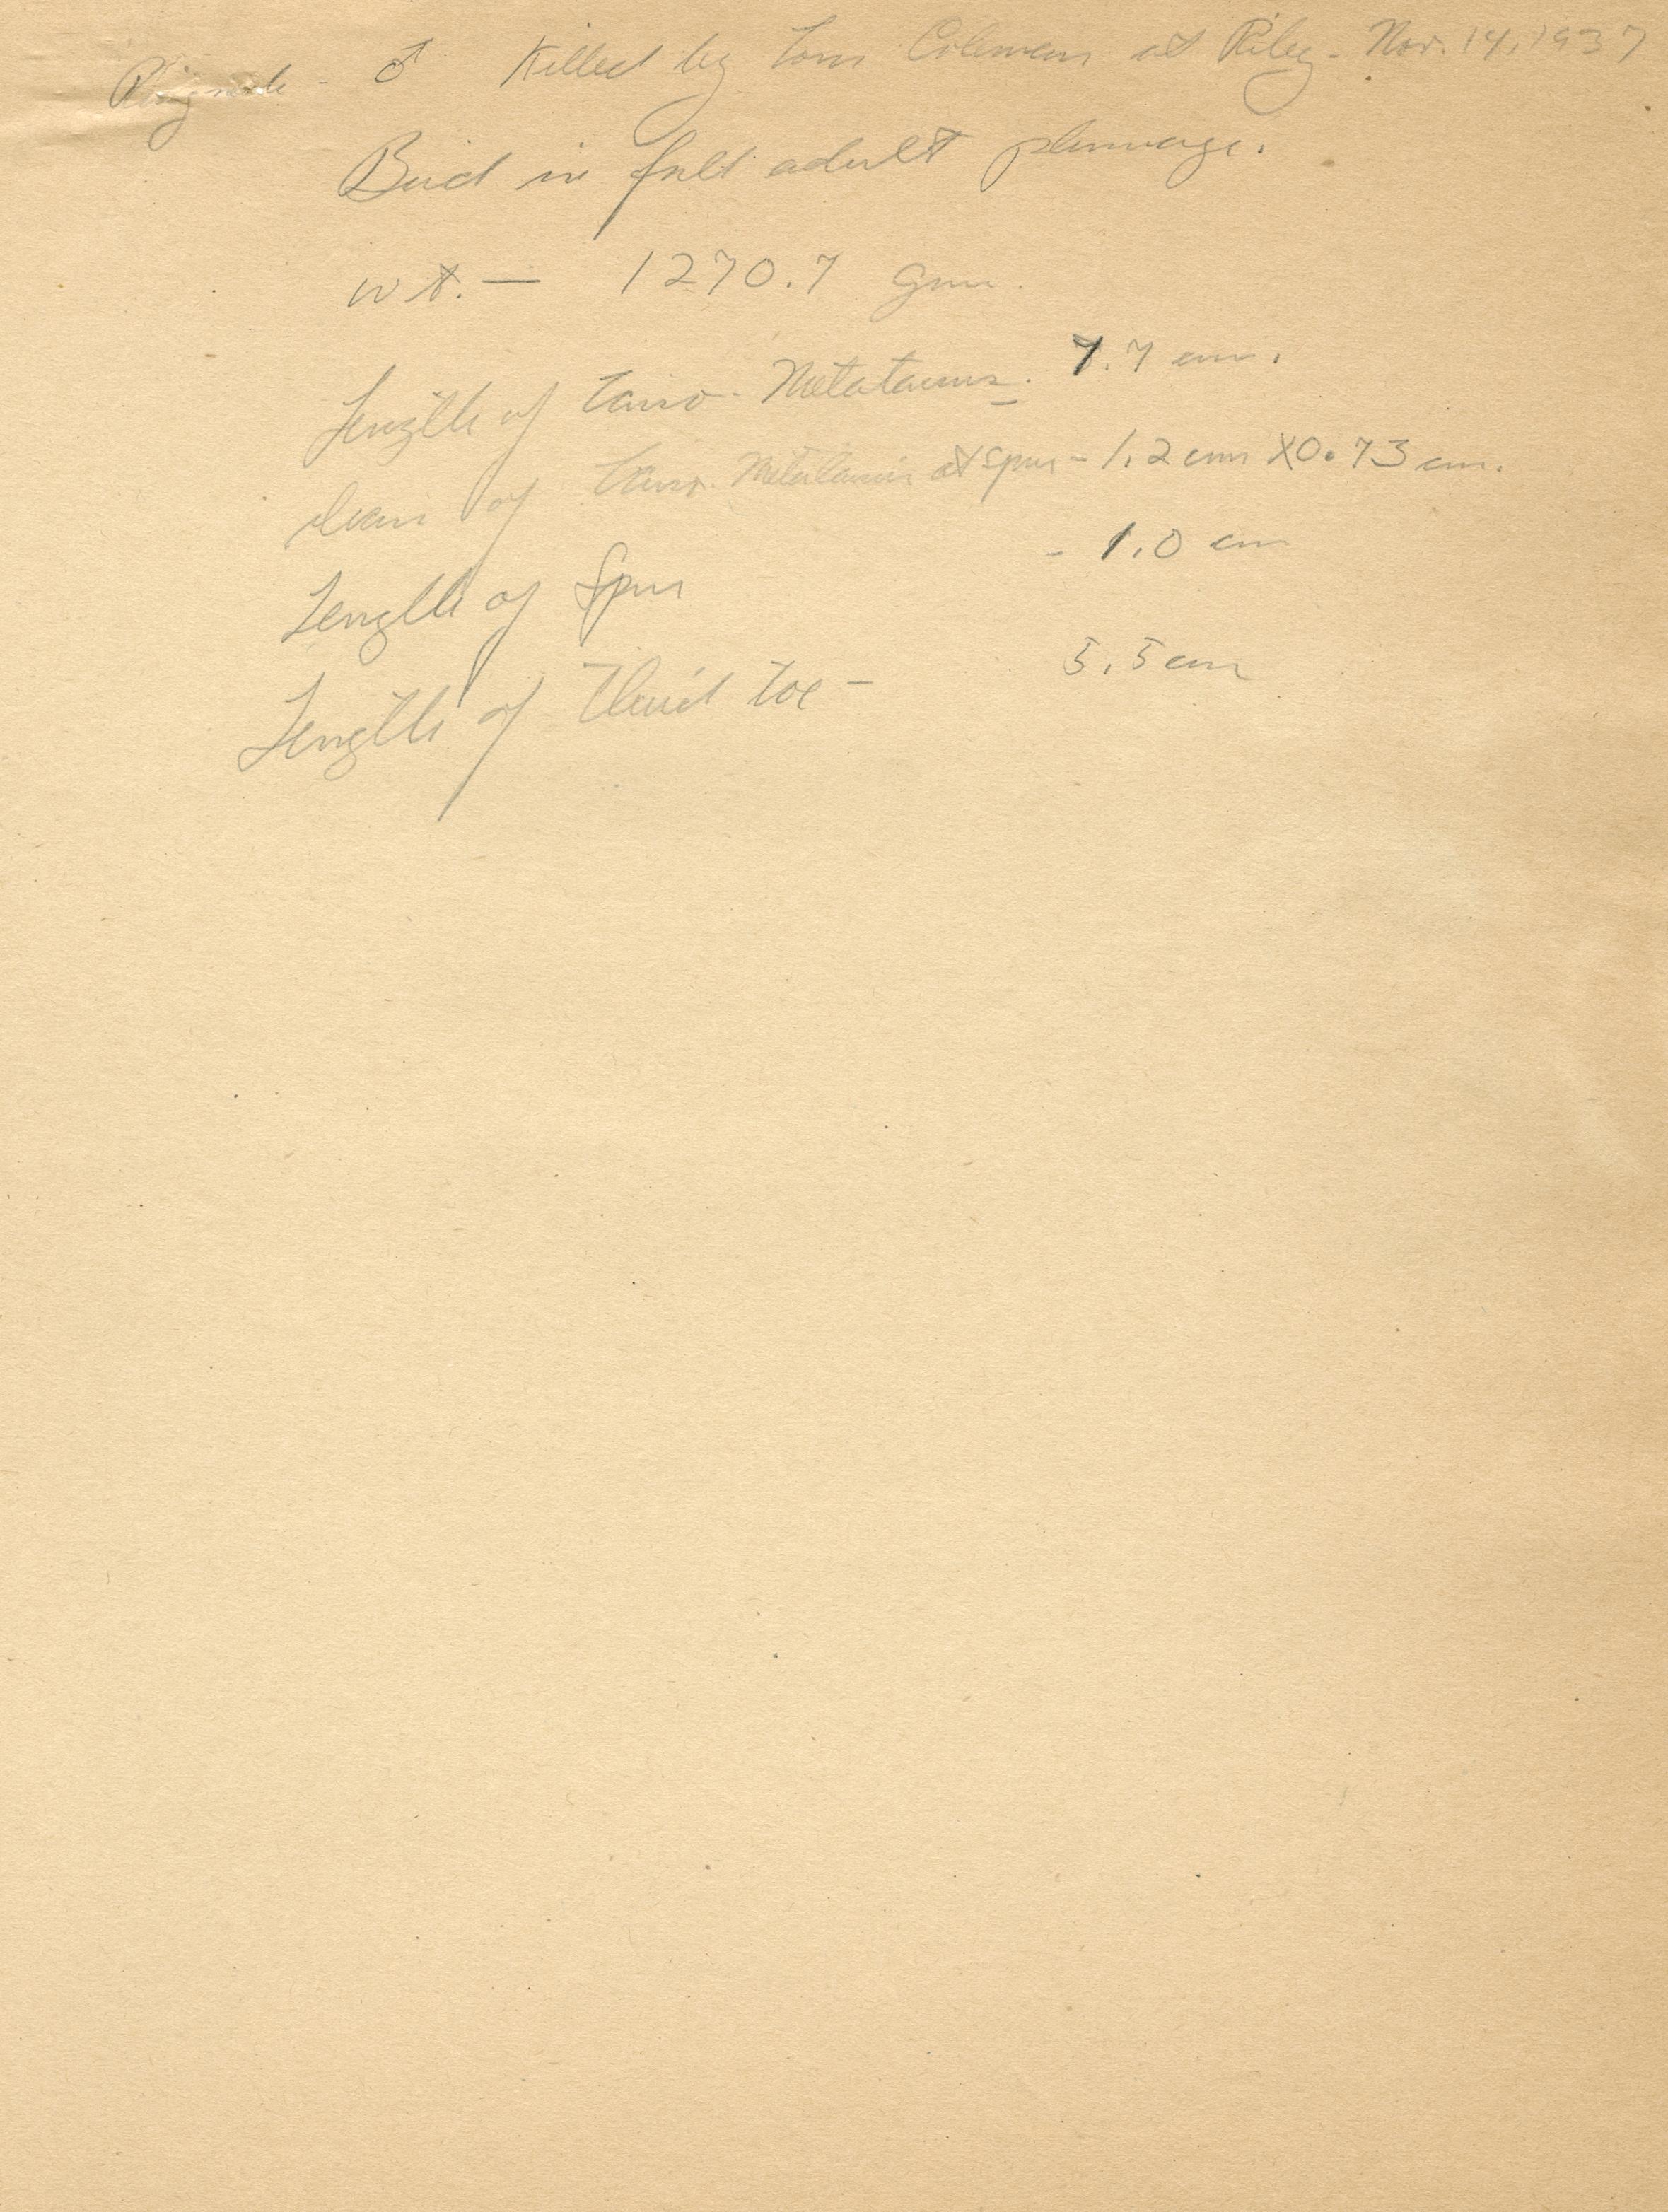 Ringneck - ♂ Killed by Tom Coleman at Riley - Nov. 14, 1937
Bird in full adult plumage.
wt. — 1270.7 gm.
Length of Tarso-Metatarsus. 7.7 cm.
diam of Tarso-Metatarsus at spur - 1.2 cm X 0.73 cm.
Length of Spur - 1.0 cm
Length of Third toe - 5.5 cm